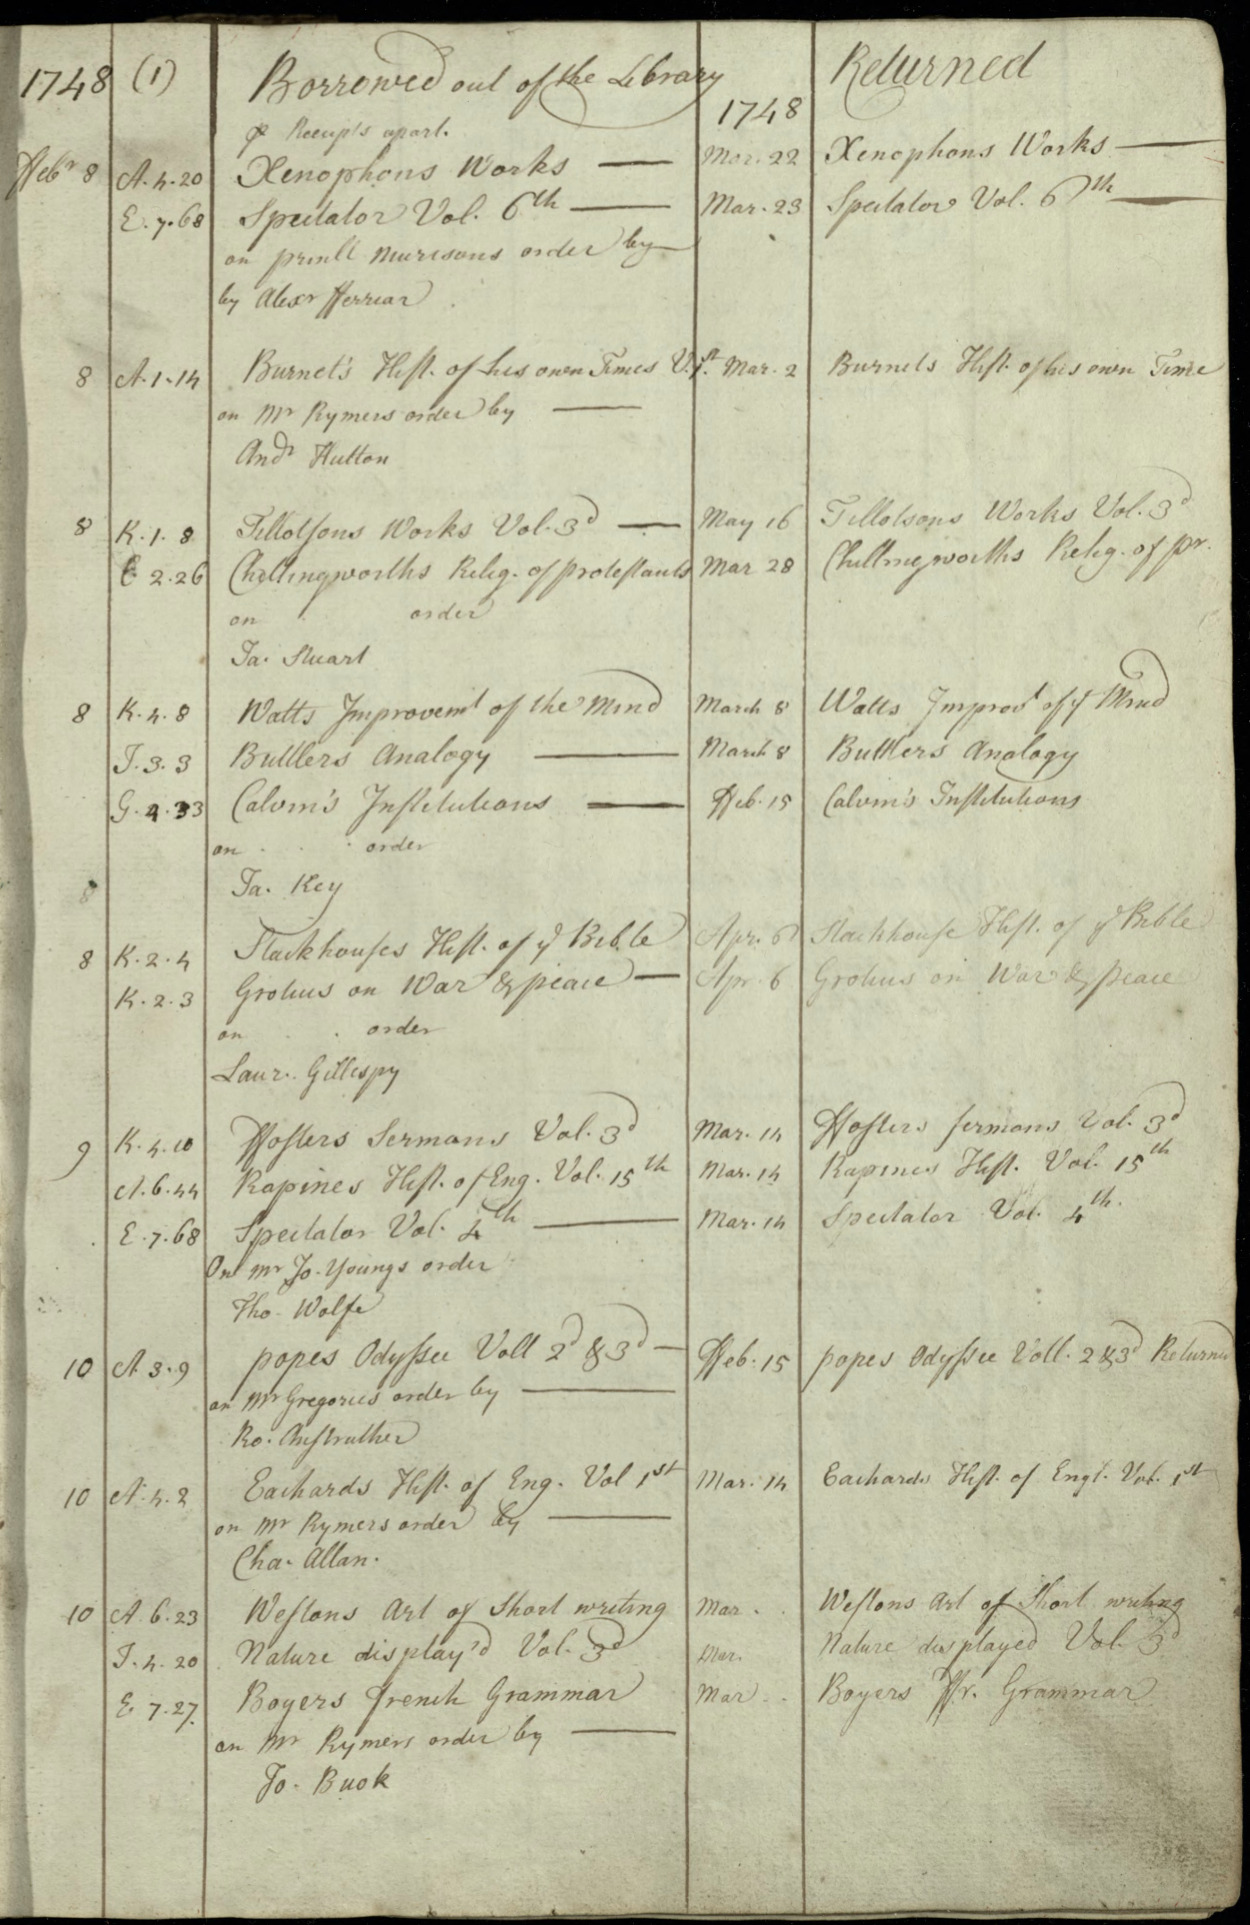 1748 (1) Borrowed out of the Library 1748 Returned
P Receipts apart.
Ffebr 8 A.4.20 Xenophons Works — Mar. 22 Xenophons Works —
E.7.68 Spectator Vol. 6th — Mar. 23 Spectator Vol. 6th —
on prinll Murisons order by
by Alexr Fferriar
8 A.1.14 Burnet's Hist. of his own Times V. 1st. Mar. 2 Burnets Hist. of his own Time
on Mr Rymers order by —
Andr Hutton
8 K.1.8 Tillotsons Works Vol. 3d — May 16 Tillotsons Works Vol. 3d
E 2.26 Chillingworths Relig. of protestants Mar 28 Chillingworths Relig. of pr.
on order
Ja. Stuart
8 K.4.8 Watts Improvemt of the Mind March 8 Watts Improvt of ye Mind
I.3.3 Buttlers Analogy — March 8 Buttlers Analogy
G.4.33 Calvin's Institutions — Ffeb. 15 Calvin's Institutions
on order
8 Ja. Key
8 K.2.4 Stackhouses Hist. of ye Bible Apr. 6 Stackhouse Hist. of ye Bible
K.2.3 Grotius on War & peace — Apr. 6 Grotius on War & peace
on order
Laur. Gillespy
9 K.4.10 Ffosters Sermons Vol. 3d Mar. 14 Ffosters sermons Vol. 3d
A.6.44 Rapines Hist. of Eng. Vol. 15th Mar. 14 Rapines Hist. Vol. 15th
E.7.68 Spectator Vol. 4th — Mar. 14 Spectator Vol. 4th.
On Mr Jo. Youngs order
Tho. Wolfe
10 A 3.9 popes Odyssee Voll 2d & 3d — Ffeb. 15 popes Odyssee Voll. 2 & 3d Returned
on Mr Gregories order by —
Ro. Anstruther
10 A.4.2 Eachards Hist. of Eng. Vol 1st Mar. 14 Eachards Hist. of Engl. Vol. 1st
on Mr Rymers order by —
Cha. Allan.
10 A.6.23 Westons Art of Short writing Mar. Westons Art of Short writing
I.4.20 Nature display'd Vol. 3d Mar. Nature displayed Vol. 3d
E 7.27. Boyers french Grammar Mar. Boyers Ffr. Grammar
on Mr Rymers order by —
Jo. Buok